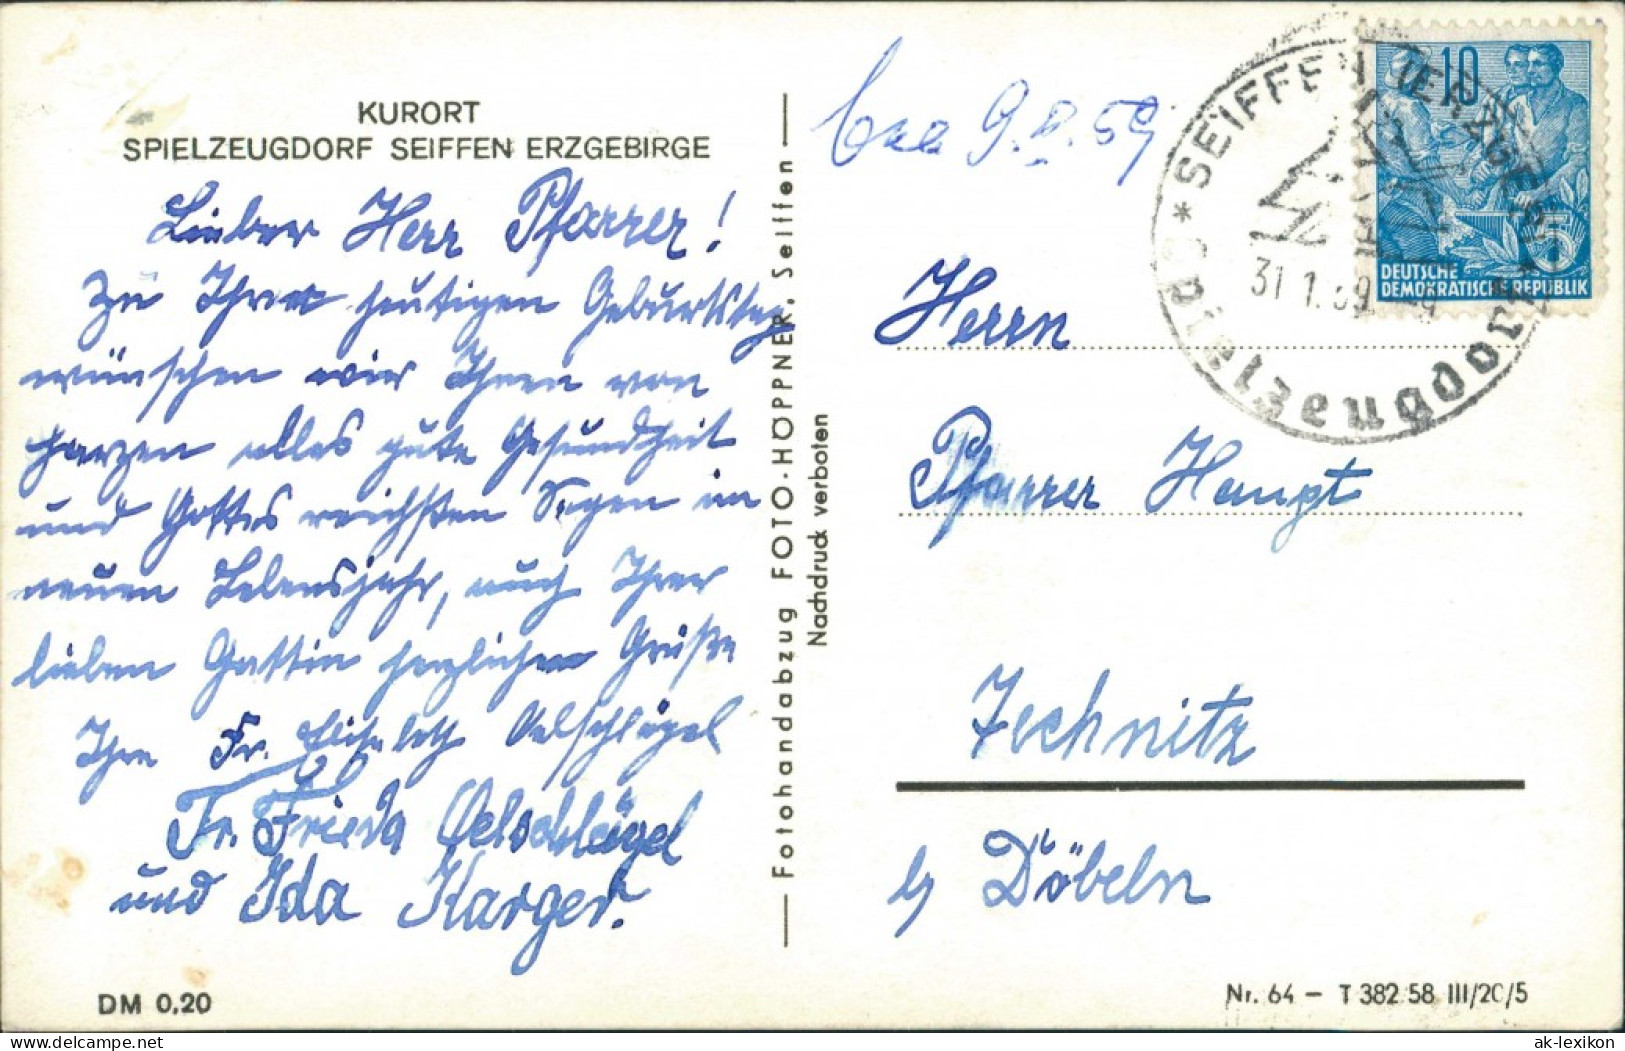 KURORT
SPIELZEUGDORF SEIFFEN ERZGEBIRGE
Lieber Herr Pfarrer!
Zu Ihrem heutigen Geburtstag
wünschen wir Ihnen von
Herzen alles gute Gesundheit
und Gottes reichsten Segen im
neuen Lebensjahr, auch Ihrer
lieben Gattin herzlichen Grüße
Ihre Fr. Elisabeth Oelschlägel
Fr. Frieda Oelschlägel
und Ida Karger.
DM 0,20
Fotohandabzug FOTO-HÖPPNER, Seiffen
Nachdruck verboten
9.2.59
* SEIFFEN (ERZGEB.) *
Spielzeugdorf
31.1.59
10
DEUTSCHE
DEMOKRATISCHE REPUBLIK
Herrn
Pfarrer Haupt
Zschnitz
b/ Döbeln
Nr. 64 – T 382 58 III/20/5
ak-lexikon